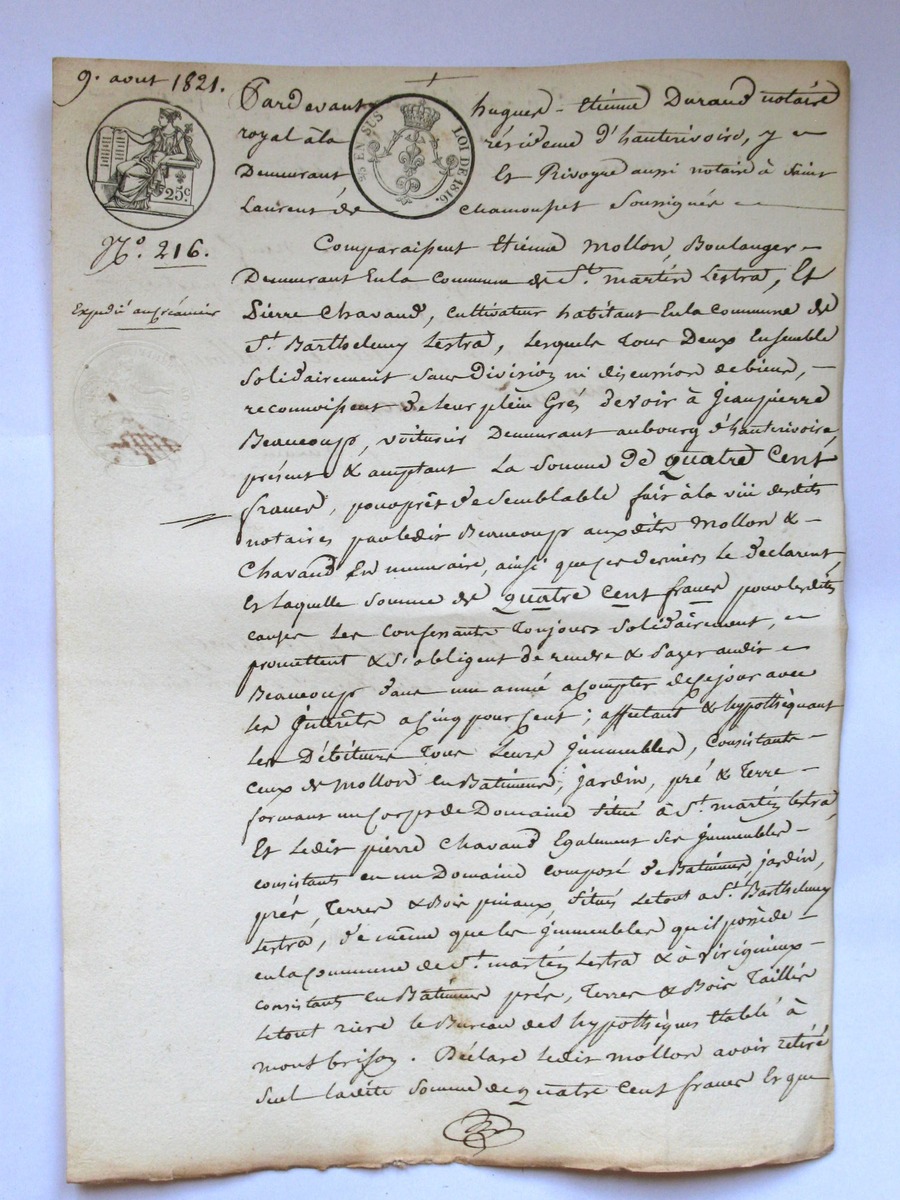 9. aout 1821.
25 EN SUS LOI DE 1816.
25 c.
N.º 216.
Expedié au créancier
Pardevant hugues - étiénne Durand notaire
royal à la résidence d'hauterivoire, y
Demeurant Et Rivoyre aussi notaire à Saint
Laurent de Chamousset Soussignés
Comparaissent étiénne mollon, Boulanger
Demeurant En la Commune de St. martin Lestra, Et
Pierre Chavand, Cultivateur habitant En la Commune de
St. Barthelemy Lestra, Lesquels Tous Deux Ensemble
Solidairement Sans Division ni discussion de biens,
reconnoissent de leur plein Gré, devoir à Jeanpierre
Beaucoup, voiturier Demeurant au bourg d'hauterivoire,
présent & acceptant La Somme De quatre Cent
francs, pour prêt de Semblable fait à la vüe desdits
notaires par ledit Beaucoup auxdits mollon &
Chavand En numeraire, ainsi que ces derniers le déclarent,
Et Laquelle Somme de quatre Cent francs pour lesdites
causes Les Confessants Toujours Solidairement,
promettent & S'obligent de rendre & Payer audit
Beaucoup dans une année a Compter de ce jour avec
les Intérêts a Cinq pour Cent ; affectant & hypothèquant
Les Débiteurs Tous Leurs Immeubles, Consistants
Ceux de Mollon En Batiments, jardin, pré & Terre
formant un Corps de Domaine Situé à St. martin Lestra
Et Ledit pierre Chavand Egalement Ses Immeubles
consistants en un Domaine Composé de Batiments, jardin,
prés, Terres & Bois pinaux, Situés Letout a St. Barthelemy
Lestra, de même que les Immeubles qu'il possède
en la Commune de St. martin Lestra & à virigneux
consistants En Batiments prés, Terres & Bois Taillis
Letout rière le Bureau des hypothèques établi à
montbrison. Déclare Ledit mollon avoir retiré
Seul Ladite Somme de quatre Cent francs Et que